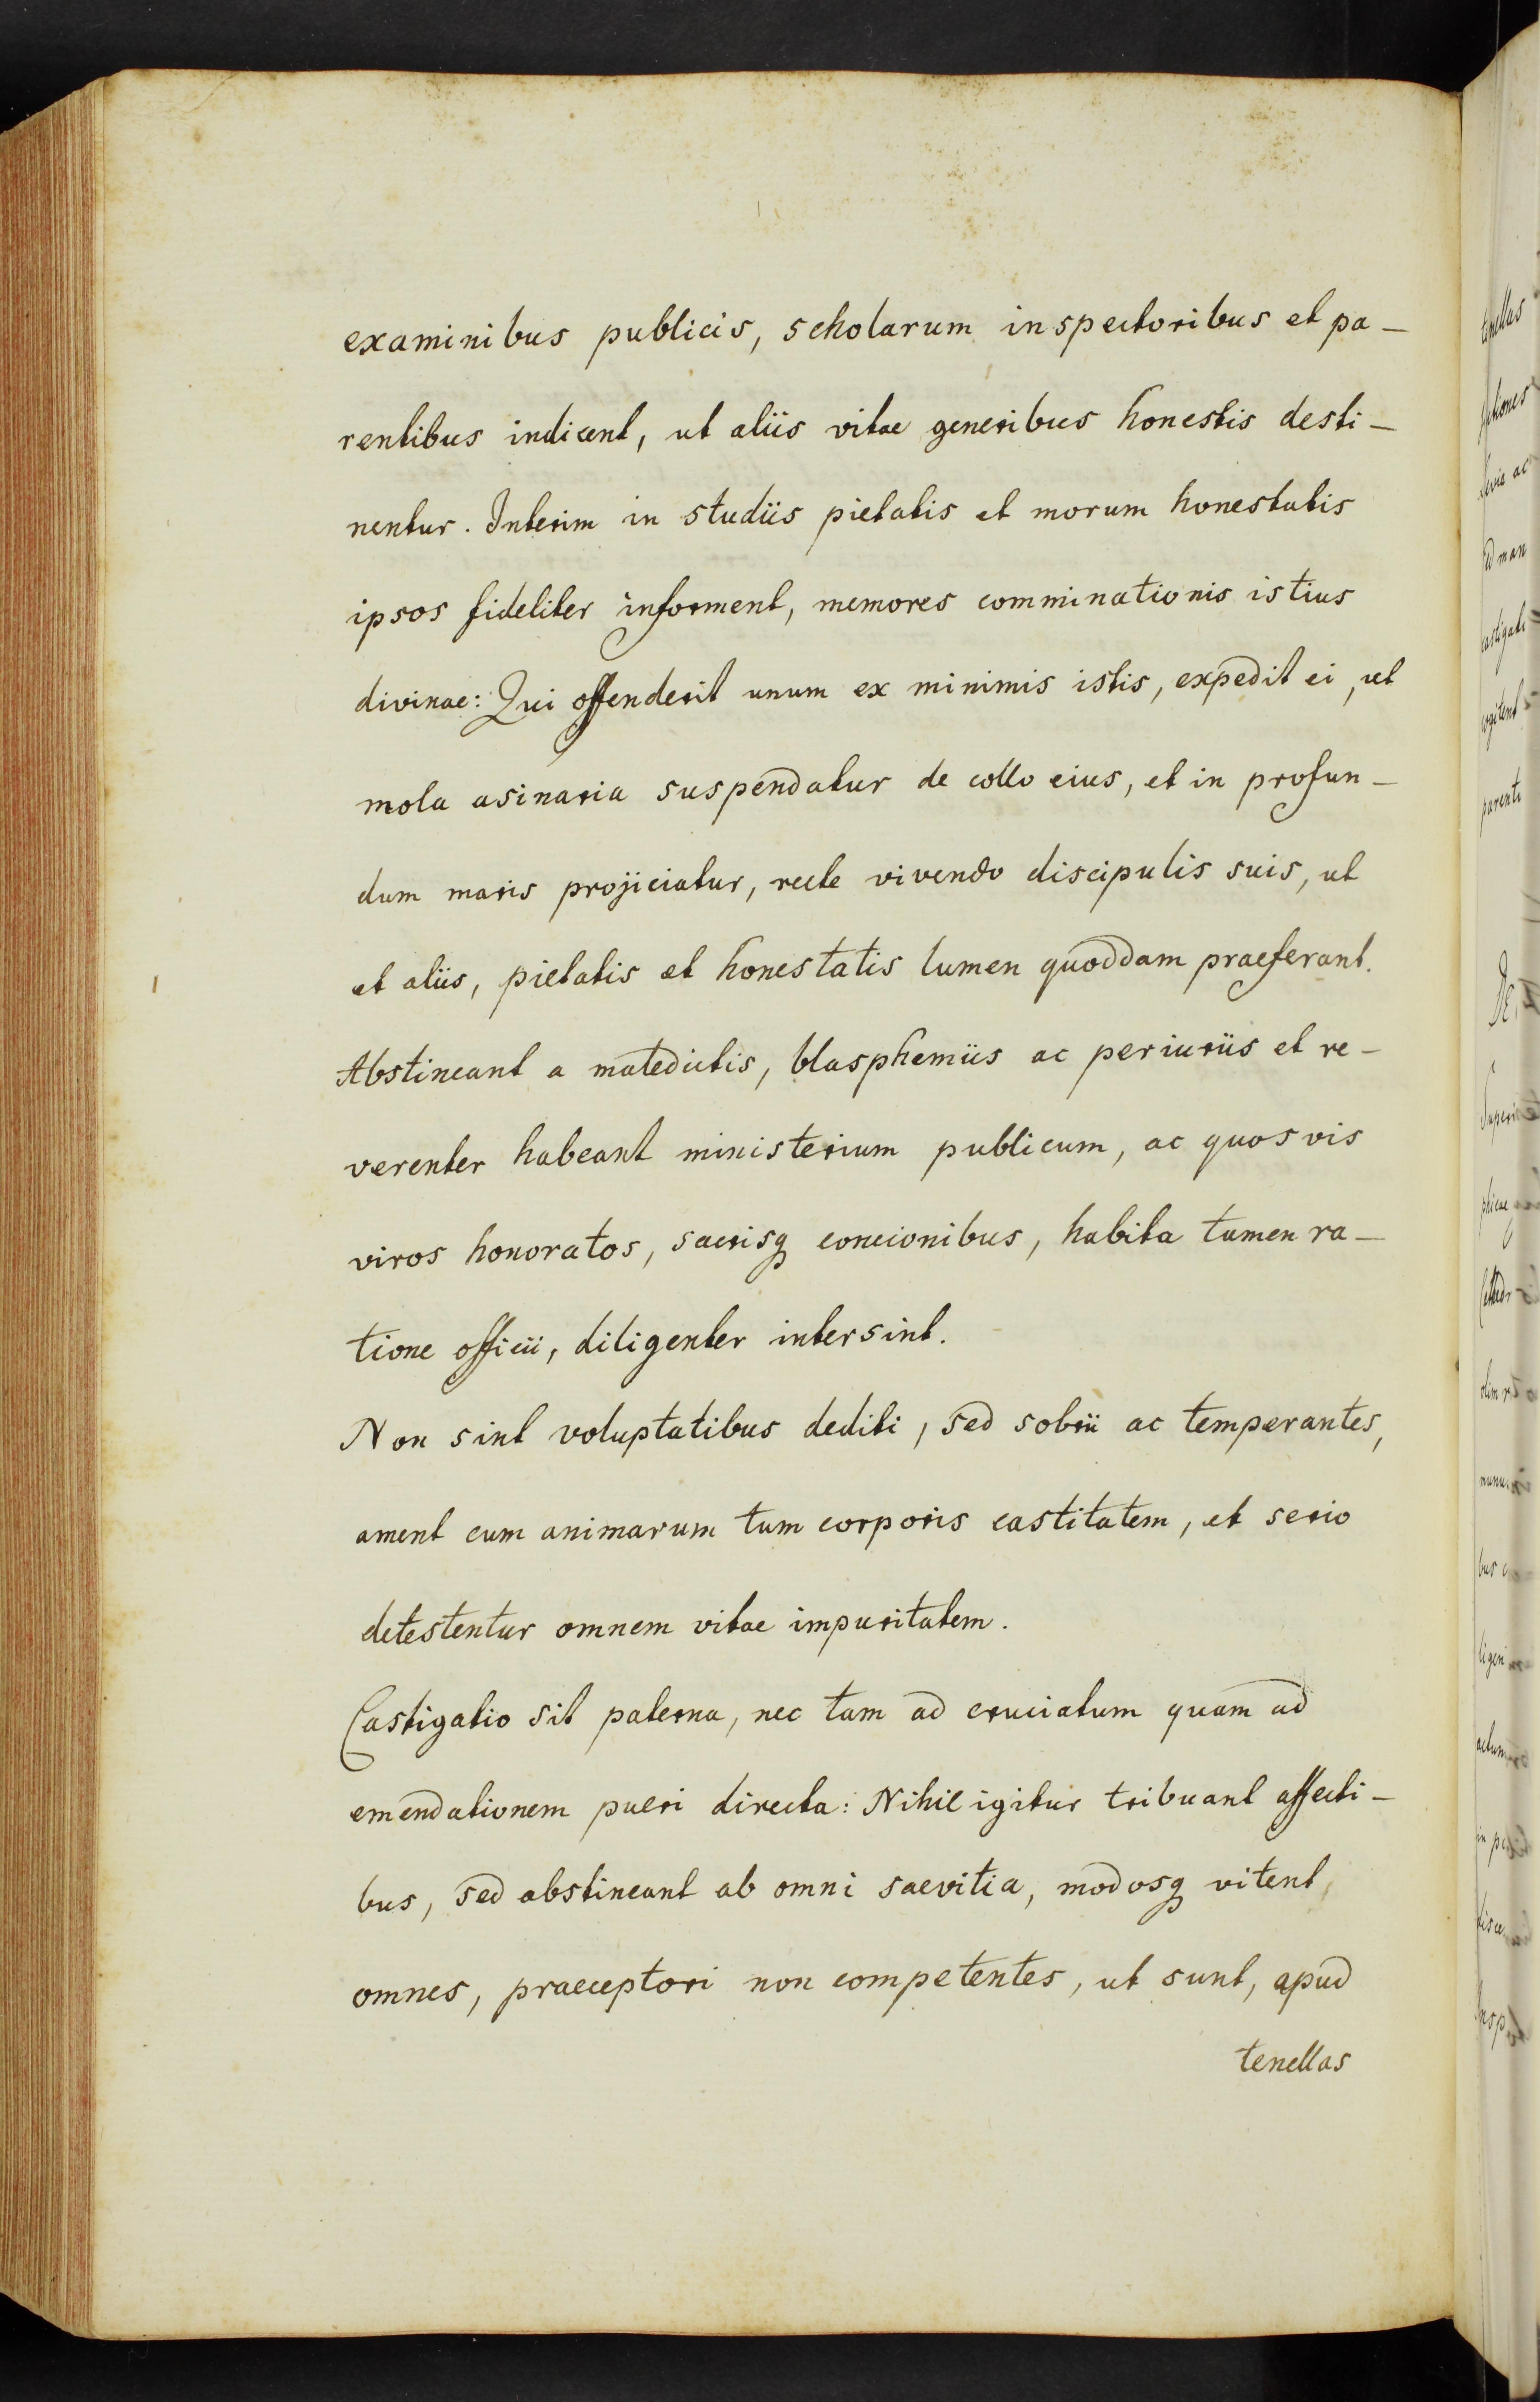 examinibus publicis, scholarum inspectoribus et pa-
rentibus indicent, ut aliis vitae generibus honestis desti-
nentur. Interim in studiis pietatis et morum honestatis
ipsos fideliter informent, memores comminationis istius
divinae: Qui offenderit unum ex minimis istis, expedit ei, ut
mola asinaria suspendatur de collo eius, et in profun-
dum maris projiciatur, recte vivendo discipulis suis, ut
et aliis, pietatis et honestatis lumen quoddam praeferant.
Abstineant a maledictis, blasphemiis ac periuriis et re-
verenter habeant ministerium publicum, ac quosvis
viros honoratos, sacrisq concionibus, habita tamen ra-
tione officii, diligenter intersint.
Non sint voluptatibus dediti, sed sobrii ac temperantes,
ament cum animarum tum corporis castitatem, et serio
detestentur omnem vitae impuritatem.
Castigatio sit paterna, nec tam ad cruciatum quam ad
emendationem pueri directa: Nihil igitur tribuant affecti-
bus, sed abstineant ab omni saevitia, modosq vitent,
omnes, praeceptori non competentes, ut sunt, apud
tenellas